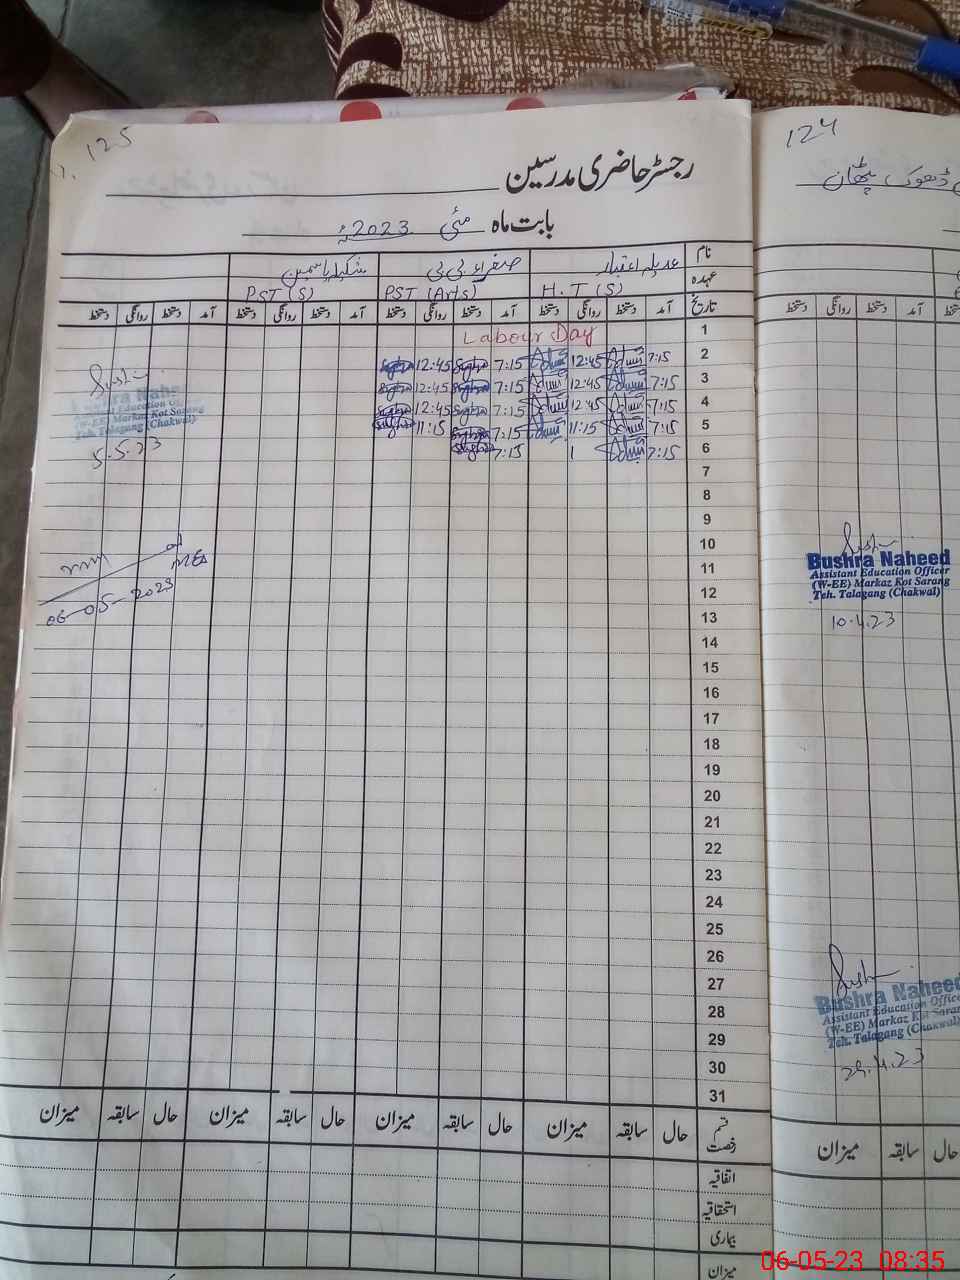 125
رجسٹر حاضری مدرسین
بابت ماہ مئی 2023ء
نام عدیلہ اعتبار صغراء بی بی شکیلہ یاسمین
عہدہ H.T (S) PST (Arts) PST (S)
تاریخ آمد دستخط روانگی دستخط آمد دستخط روانگی دستخط آمد دستخط روانگی دستخط آمد دستخط روانگی دستخط
1 Labour Day
2 7:15 12:45 7:15 12:45
3 7:15 12:45 7:15 12:45
4 7:15 12:45 7:15 12:45
5 7:15 11:15 7:15 11:15
6 7:15 7:15
7
8
9
10
11
12
13
14
15
16
17
18
19
20
21
22
23
24
25
26
27
28
29
30
31
Bushra Naheed
Assistant Education Officer
(W-EE) Markaz Kot Sarang
Teh. Talagang (Chakwal)
5.5.23
06-05-2023
قسم رخصت حال سابقہ میزان حال سابقہ میزان حال سابقہ میزان حال سابقہ میزان
اتفاقیہ
استحقاقیہ
بیماری
میزان
124
ڈھوک پٹھان
آمد دستخط روانگی دستخط
Bushra Naheed
Assistant Education Officer
(W-EE) Markaz Kot Sarang
Teh. Talagang (Chakwal)
10.4.23
Bushra Naheed
Assistant Education Office
(W-EE) Markaz Kot Sarang
Teh. Talagang (Chakwal)
29.4.23
حال سابقہ میزان
06-05-23 08:35